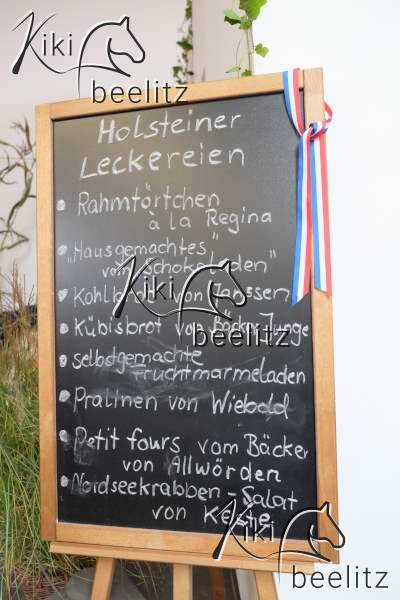 Kiki
beelitz
Holsteiner
Leckereien
Rahmtörtchen
à la Regina
"Hausgemachtes"
vom "Schokoladen"
Kohlbrot von Janssen
Kübisbrot von Bäcker Junge
selbstgemachte
Fruchtmarmeladen
Pralinen von Wiebold
Petit fours vom Bäcker
von Allwörden
Nordseekrabben-Salat
von
Kiki
beelitz
Kiki
beelitz